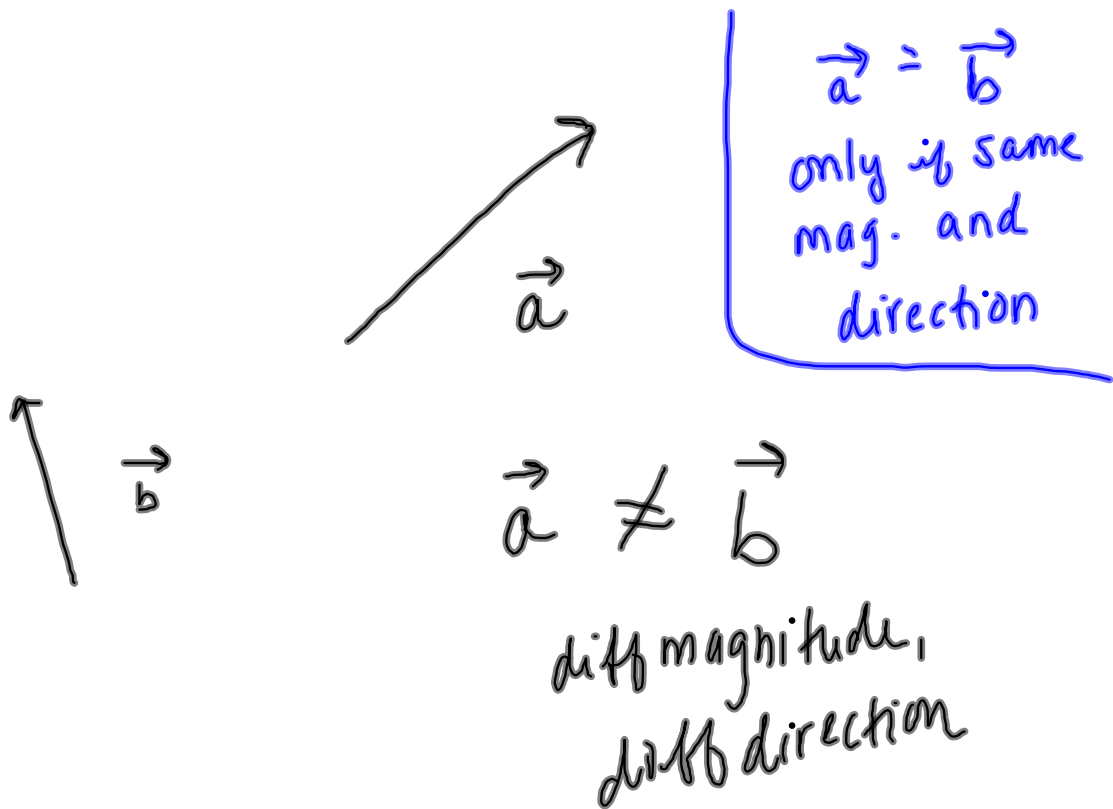 a⃗ = b⃗
only if same
mag. and
direction
a⃗
b⃗
a⃗ ≠ b⃗
diff magnitude,
diff direction